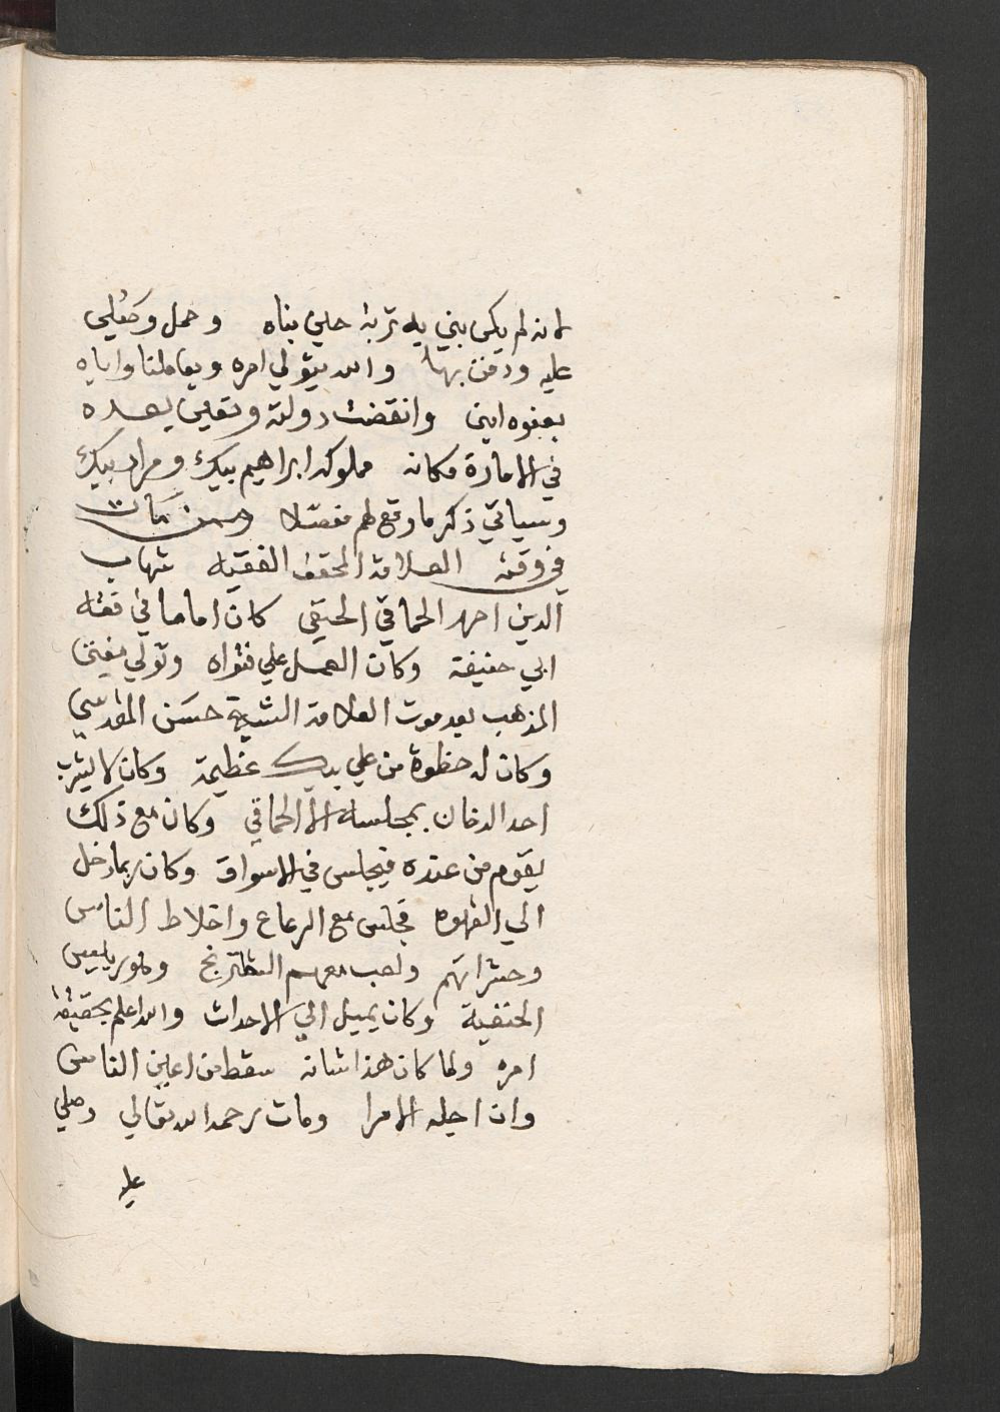 لانه لم يكن بني له تربة حين بناه وحمل وصلي
عليه ودفن بها والله يتولي امره ويعاملنا واياه
بعفوه امين وانقضت دولته وتعين بعده
في الامارة مكانه مملوكه ابراهيم بيك ومراد بيك
وسياتي ذكر ما وقع لهم مفصلا وممن مات
في وقته العلامة المحقق الفقيه شهاب
الدين احمد الحماقي الحنفي كان اماما في فقه
ابي حنيفة وكان العمل علي فتواه وتولي مفتي
المذهب بعد موت العلامة الشيخ حسن المقدسي
وكان له حظوة من علي بيك عظيمة وكان لا يشرب
احد الدخان بمجلسه الا الحماقي وكان مع ذلك
يقوم من عنده فيجلس في الاسواق وكان ربما دخل
الي القهوه فجلس مع الرعاع واخلاط الناس
وحشراتهم ولعب معهم الشطرنج وهو رييس
الحنفية وكان يميل الي الاحداث والله اعلم بحقيقة
امره ولما كان هذا شانه سقط من اعين الناس
وان اجله الامرا ومات رحمه الله تعالي وصلي
عليه